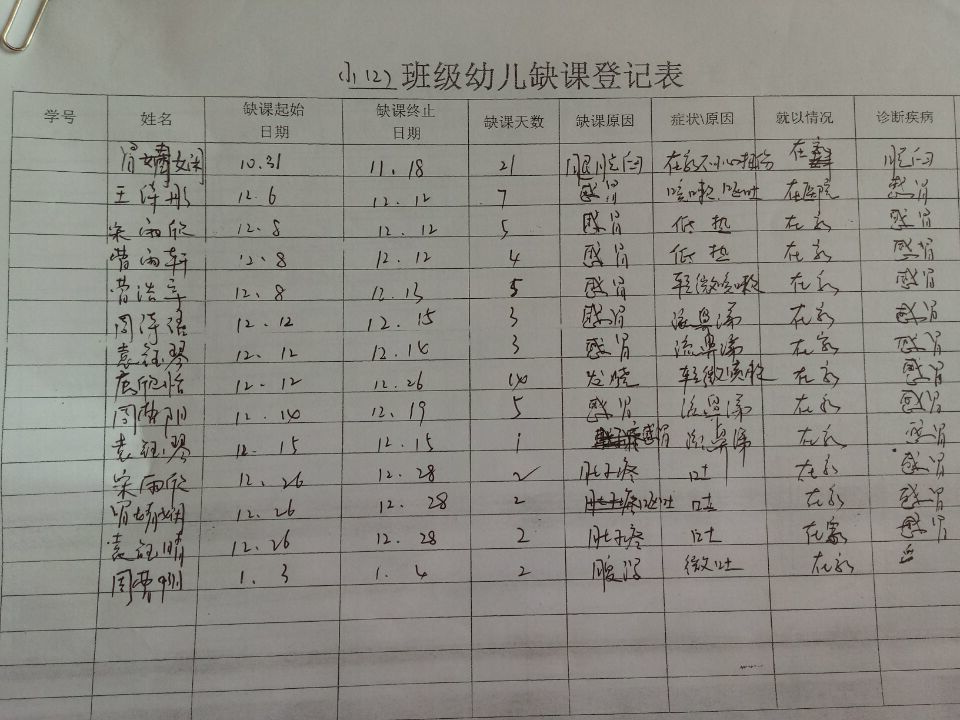 小(2)班级幼儿缺课登记表
学号 姓名 缺课起始日期 缺课终止日期 缺课天数 缺课原因 症状\原因 就以情况 诊断疾病
10.31 11.18 21 脱臼 在家不小心 在家 脱臼
王 12.6 12.12 7 感冒 咳嗽.呕吐 在医院 感冒
宋雨欣 12.8 12.12 5 感冒 低热 在家 感冒
曹雨轩 12.8 12.12 4 感冒 低热 在家 感冒
曹浩宇 12.8 12.13 5 感冒 轻微咳嗽 在家 感冒
周诗语 12.12 12.15 3 感冒 流鼻涕 在家 感冒
袁钰琴 12.12 12.14 3 感冒 流鼻涕 在家 感冒
唐欣怡 12.12 12.26 14 发烧 轻微 在家 感冒
周 12.14 12.19 5 感冒 流鼻涕 在家 感冒
袁钰琴 12.15 12.15 1 感冒 流鼻涕 在家 感冒
宋雨欣 12.26 12.28 2 肚子疼 吐 在家 感冒
12.26 12.28 2 呕吐 吐 在家 感冒
袁钰晴 12.26 12.28 2 肚子疼 吐 在家 感冒
周 1.3 1.4 2 腹泻 微吐 在家